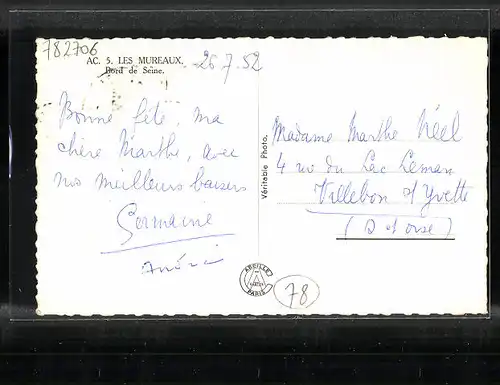 782706
AC. 5. LES MUREAUX.
Bord de Seine.
26.7.52
Bonne fête, ma
chère Marthe, avec
nos meilleurs baisers
Germaine
André
Véritable Photo.
Madame Marthe Néel
4 rue du Lac Leman
Villebon s/Yvette
(S et oise)
ABEILLE
PARIS
78